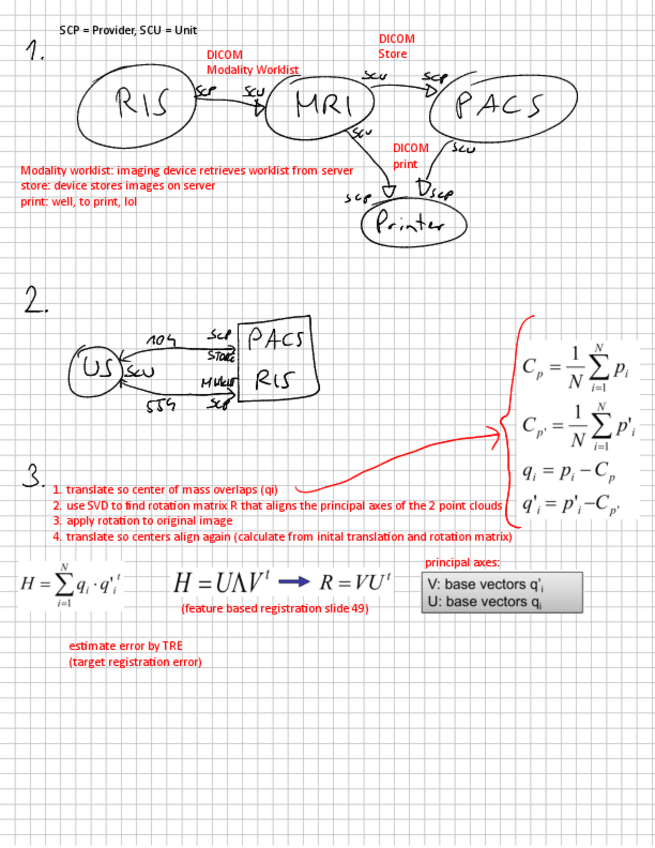 SCP = Provider, SCU = Unit
1.
DICOM
Modality Worklist
DICOM
Store
RIS
SCP
SCU
MRI
SCU
SCP
PACS
SCU
DICOM
print
SCU
SCP
SCP
Printer
Modality worklist: imaging device retrieves worklist from server
store: device stores images on server
print: well, to print, lol
2.
US
SCU
104
SCP
STORE
PACS
RIS
MWLIST
SCP
554
C_p = 1/N ∑_{i=1}^{N} p_i
C_{p'} = 1/N ∑_{i=1}^{N} p'_i
q_i = p_i − C_p
q'_i = p'_i − C_{p'}
3.
1. translate so center of mass overlaps (qi)
2. use SVD to find rotation matrix R that aligns the principal axes of the 2 point clouds
3. apply rotation to original image
4. translate so centers align again (calculate from inital translation and rotation matrix)
H = ∑_{i=1}^{N} q_i · q'_i^t
H = UΛV^t → R = VU^t
(feature based registration slide 49)
principal axes:
V: base vectors q'_i
U: base vectors q_i
estimate error by TRE
(target registration error)